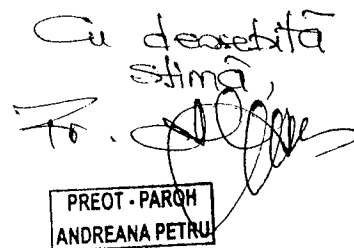 Cu deosebită
stimă,
Pr.
PREOT - PAROH
ANDREANA PETRU